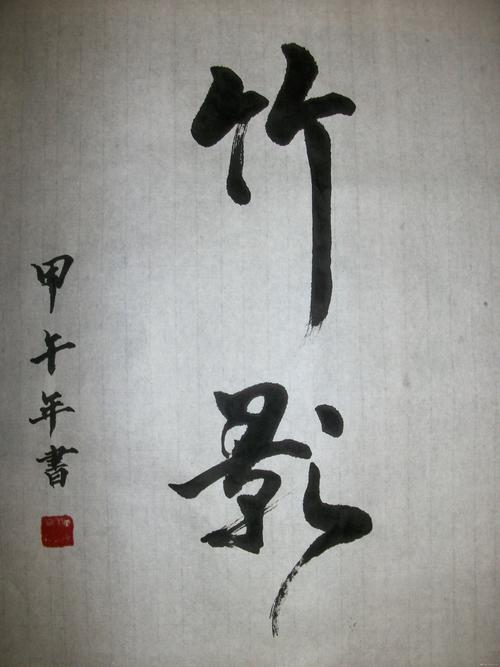 竹影
甲午年書